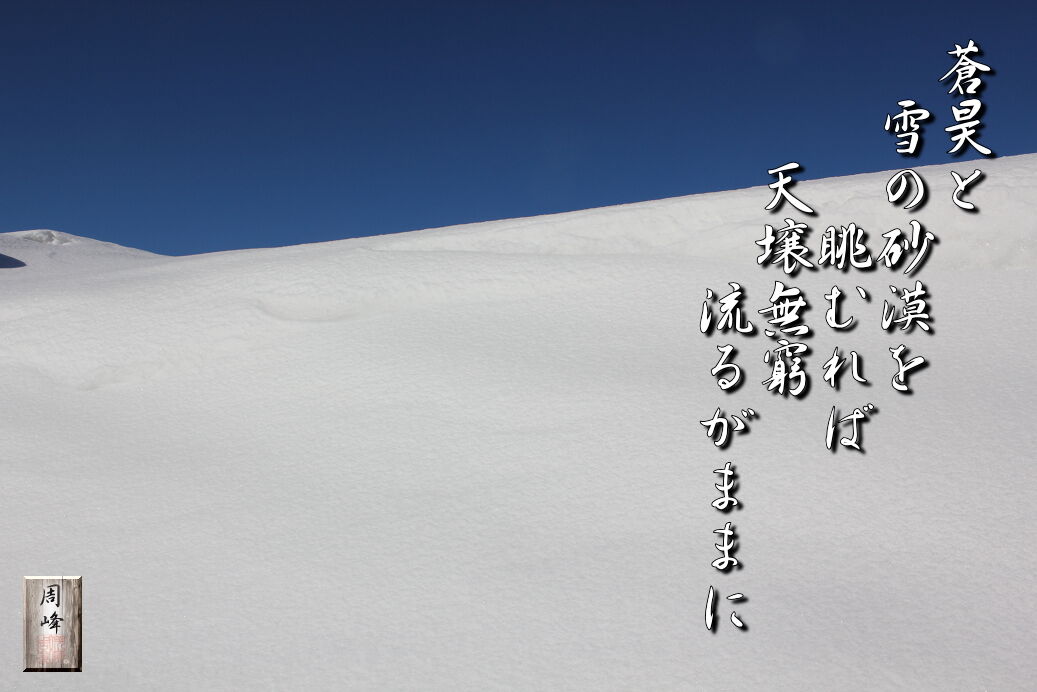 蒼昊と
雪の砂漠を
眺むれば
天壌無窮
流るがままに
周峰